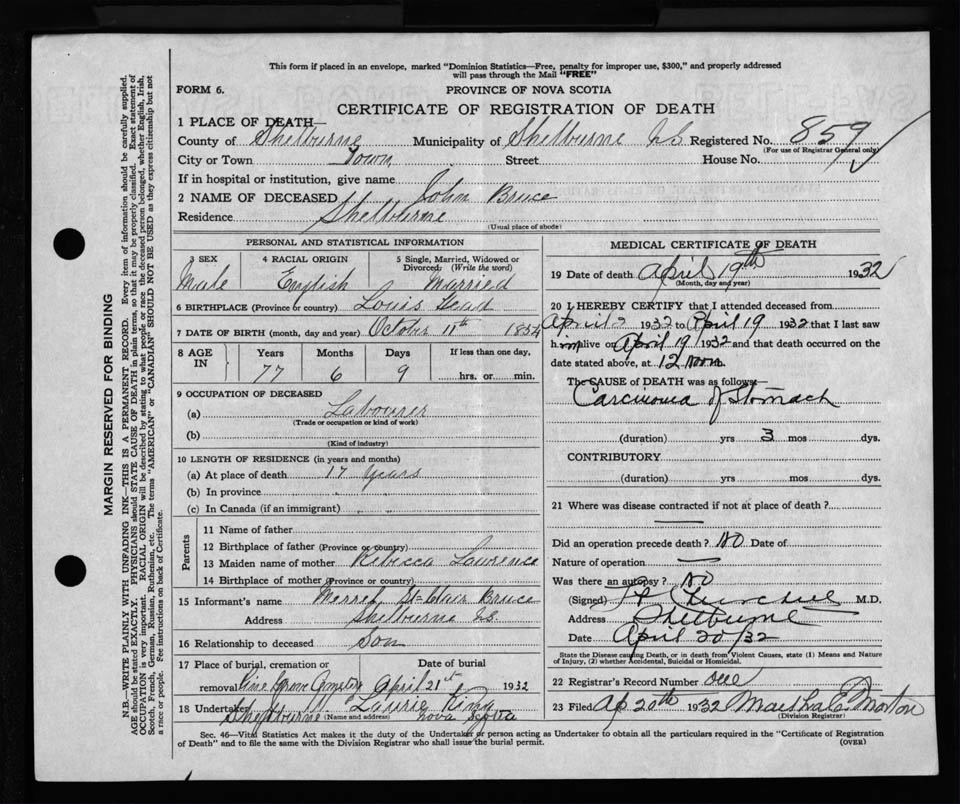 This form if placed in an envelope, marked "Dominion Statistics—Free, penalty for improper use, $300," and properly addressed
will pass through the Mail "FREE"
FORM 6.
PROVINCE OF NOVA SCOTIA
CERTIFICATE OF REGISTRATION OF DEATH
1 PLACE OF DEATH—
County of Shelburne Municipality of Shelburne NS Registered No. 859
(For use of Registrar General only)
City or Town Town Street House No.
If in hospital or institution, give name
2 NAME OF DECEASED John Bruce
Residence Shelburne
(Usual place of abode)
PERSONAL AND STATISTICAL INFORMATION
3 SEX 4 RACIAL ORIGIN 5 Single, Married, Widowed or
Divorced: (Write the word)
Male English Married
6 BIRTHPLACE (Province or country) Louis Head
7 DATE OF BIRTH (month, day and year) October 11th 1854
8 AGE IN Years Months Days If less than one day,
77 6 9 hrs. or min.
9 OCCUPATION OF DECEASED
(a) Labourer
(Trade or occupation or kind of work)
(b)
(Kind of industry)
10 LENGTH OF RESIDENCE (in years and months)
(a) At place of death 17 years
(b) In province
(c) In Canada (if an immigrant)
Parents
11 Name of father
12 Birthplace of father (Province or country)
13 Maiden name of mother Rebecca Lawrence
14 Birthplace of mother (Province or country)
15 Informant's name St Clair Bruce
Address Shelburne NS.
16 Relationship to deceased Son
17 Place of burial, cremation or Date of burial
removal Pine Grove April 21st 1932
18 Undertaker Laurie King
Shelburne Nova Scotia
(Name and address)
MEDICAL CERTIFICATE OF DEATH
19 Date of death April 19th 1932
(Month, day and year)
20 I HEREBY CERTIFY that I attended deceased from
April 2 1932 to April 19 1932 that I last saw
him alive on April 19 1932 and that death occurred on the
date stated above, at 12 Noon
The CAUSE of DEATH was as follows:—
Carcinoma of Stomach
(duration) yrs 3 mos. dys.
CONTRIBUTORY
(duration) yrs. mos. dys.
21 Where was disease contracted if not at place of death?
Did an operation precede death? No Date of
Nature of operation —
Was there an autopsy? No
(Signed) Churchill M.D.
Address Shelburne
Date April 20/32
State the Disease causing Death, or in death from Violent Causes, state (1) Means and Nature
of Injury, (2) whether Accidental, Suicidal or Homicidal.
22 Registrar's Record Number
23 Filed Ap 20th 1932 Morton
(Division Registrar)
Sec. 46—Vital Statistics Act makes it the duty of the Undertaker or person acting as Undertaker to obtain all the particulars required in the "Certificate of Registration
of Death" and to file the same with the Division Registrar who shall issue the burial permit. (OVER)
MARGIN RESERVED FOR BINDING
N.B.—WRITE PLAINLY WITH UNFADING INK—THIS IS A PERMANENT RECORD. Every item of information should be carefully supplied.
AGE should be stated EXACTLY. PHYSICIANS should STATE CAUSE OF DEATH in plain terms, so that it may be properly classified. Exact statement of
OCCUPATION is very important. RACIAL ORIGIN will be described by stating to what people or race the deceased person belonged, whether English, Irish,
Scotch, French, German, Russian, Ruthenian, etc. The terms "AMERICAN" or "CANADIAN" SHOULD NOT BE USED as they express citizenship but not
a race or people. Fee instructions on back of Certificate.